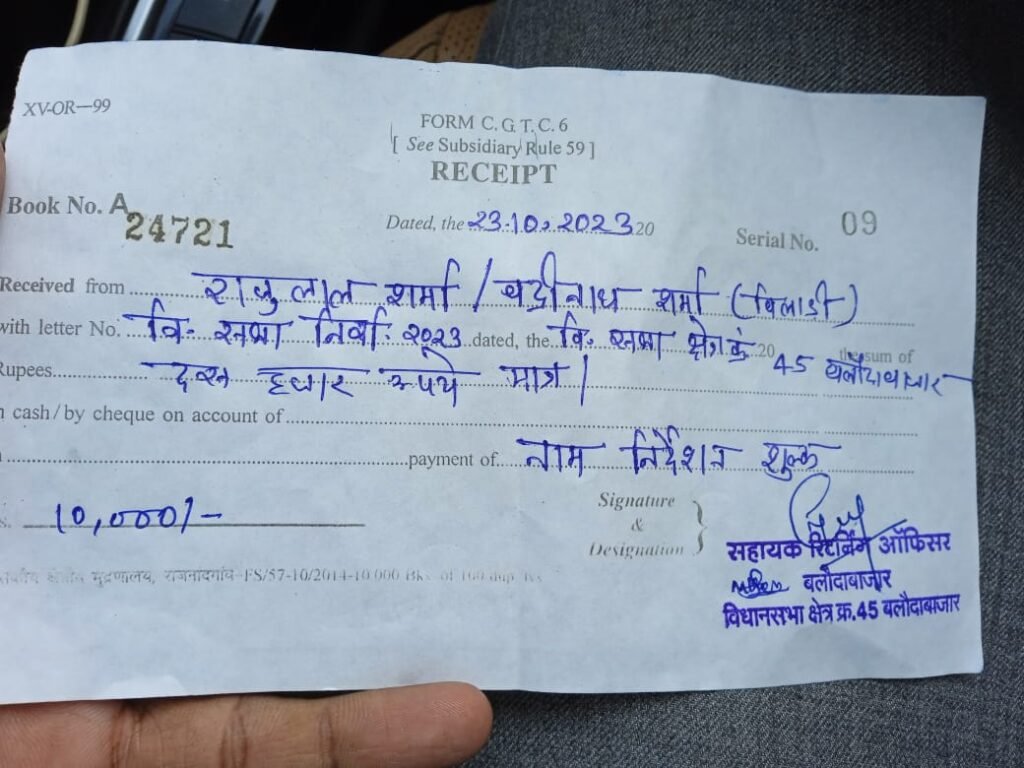 XV-OR—99
FORM C. G. T. C. 6
[ See Subsidiary Rule 59 ]
RECEIPT
Book No. A 24721
Dated, the 23.10.2023 20
Serial No. 09
Received from राजु लाल शर्मा / बद्रीनाथ शर्मा (बिलाडी)
with letter No. वि. सभा निर्वा. २०२३ dated, the वि. सभा क्षेत्र क्रं 20 45 बलौदाबाजार the sum of
Rupees दस हजार रुपये मात्र।
cash / by cheque on account of
payment of नाम निर्देशन शुल्क
10,000/-
Signature
&
Designation
सहायक रिटर्निंग ऑफिसर
बलौदाबाजार
विधानसभा क्षेत्र क्र.45 बलौदाबाजार
मुद्रणालय, राजनांदगांव-FS/57-10/2014-10,000 Bks. of 100 dup. lvs